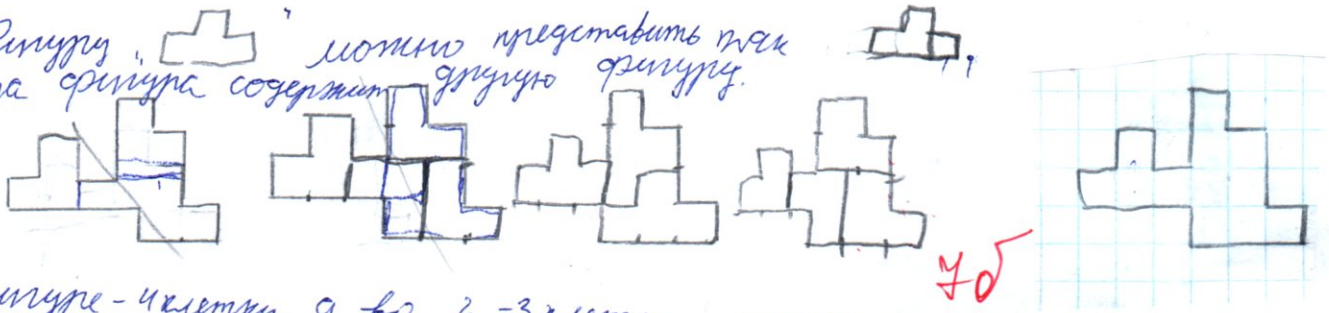 Фигуру „ " можно представить так
фигура содержит другую фигуру.
7б
фигуре - 4 клетки, а во 2 - 3